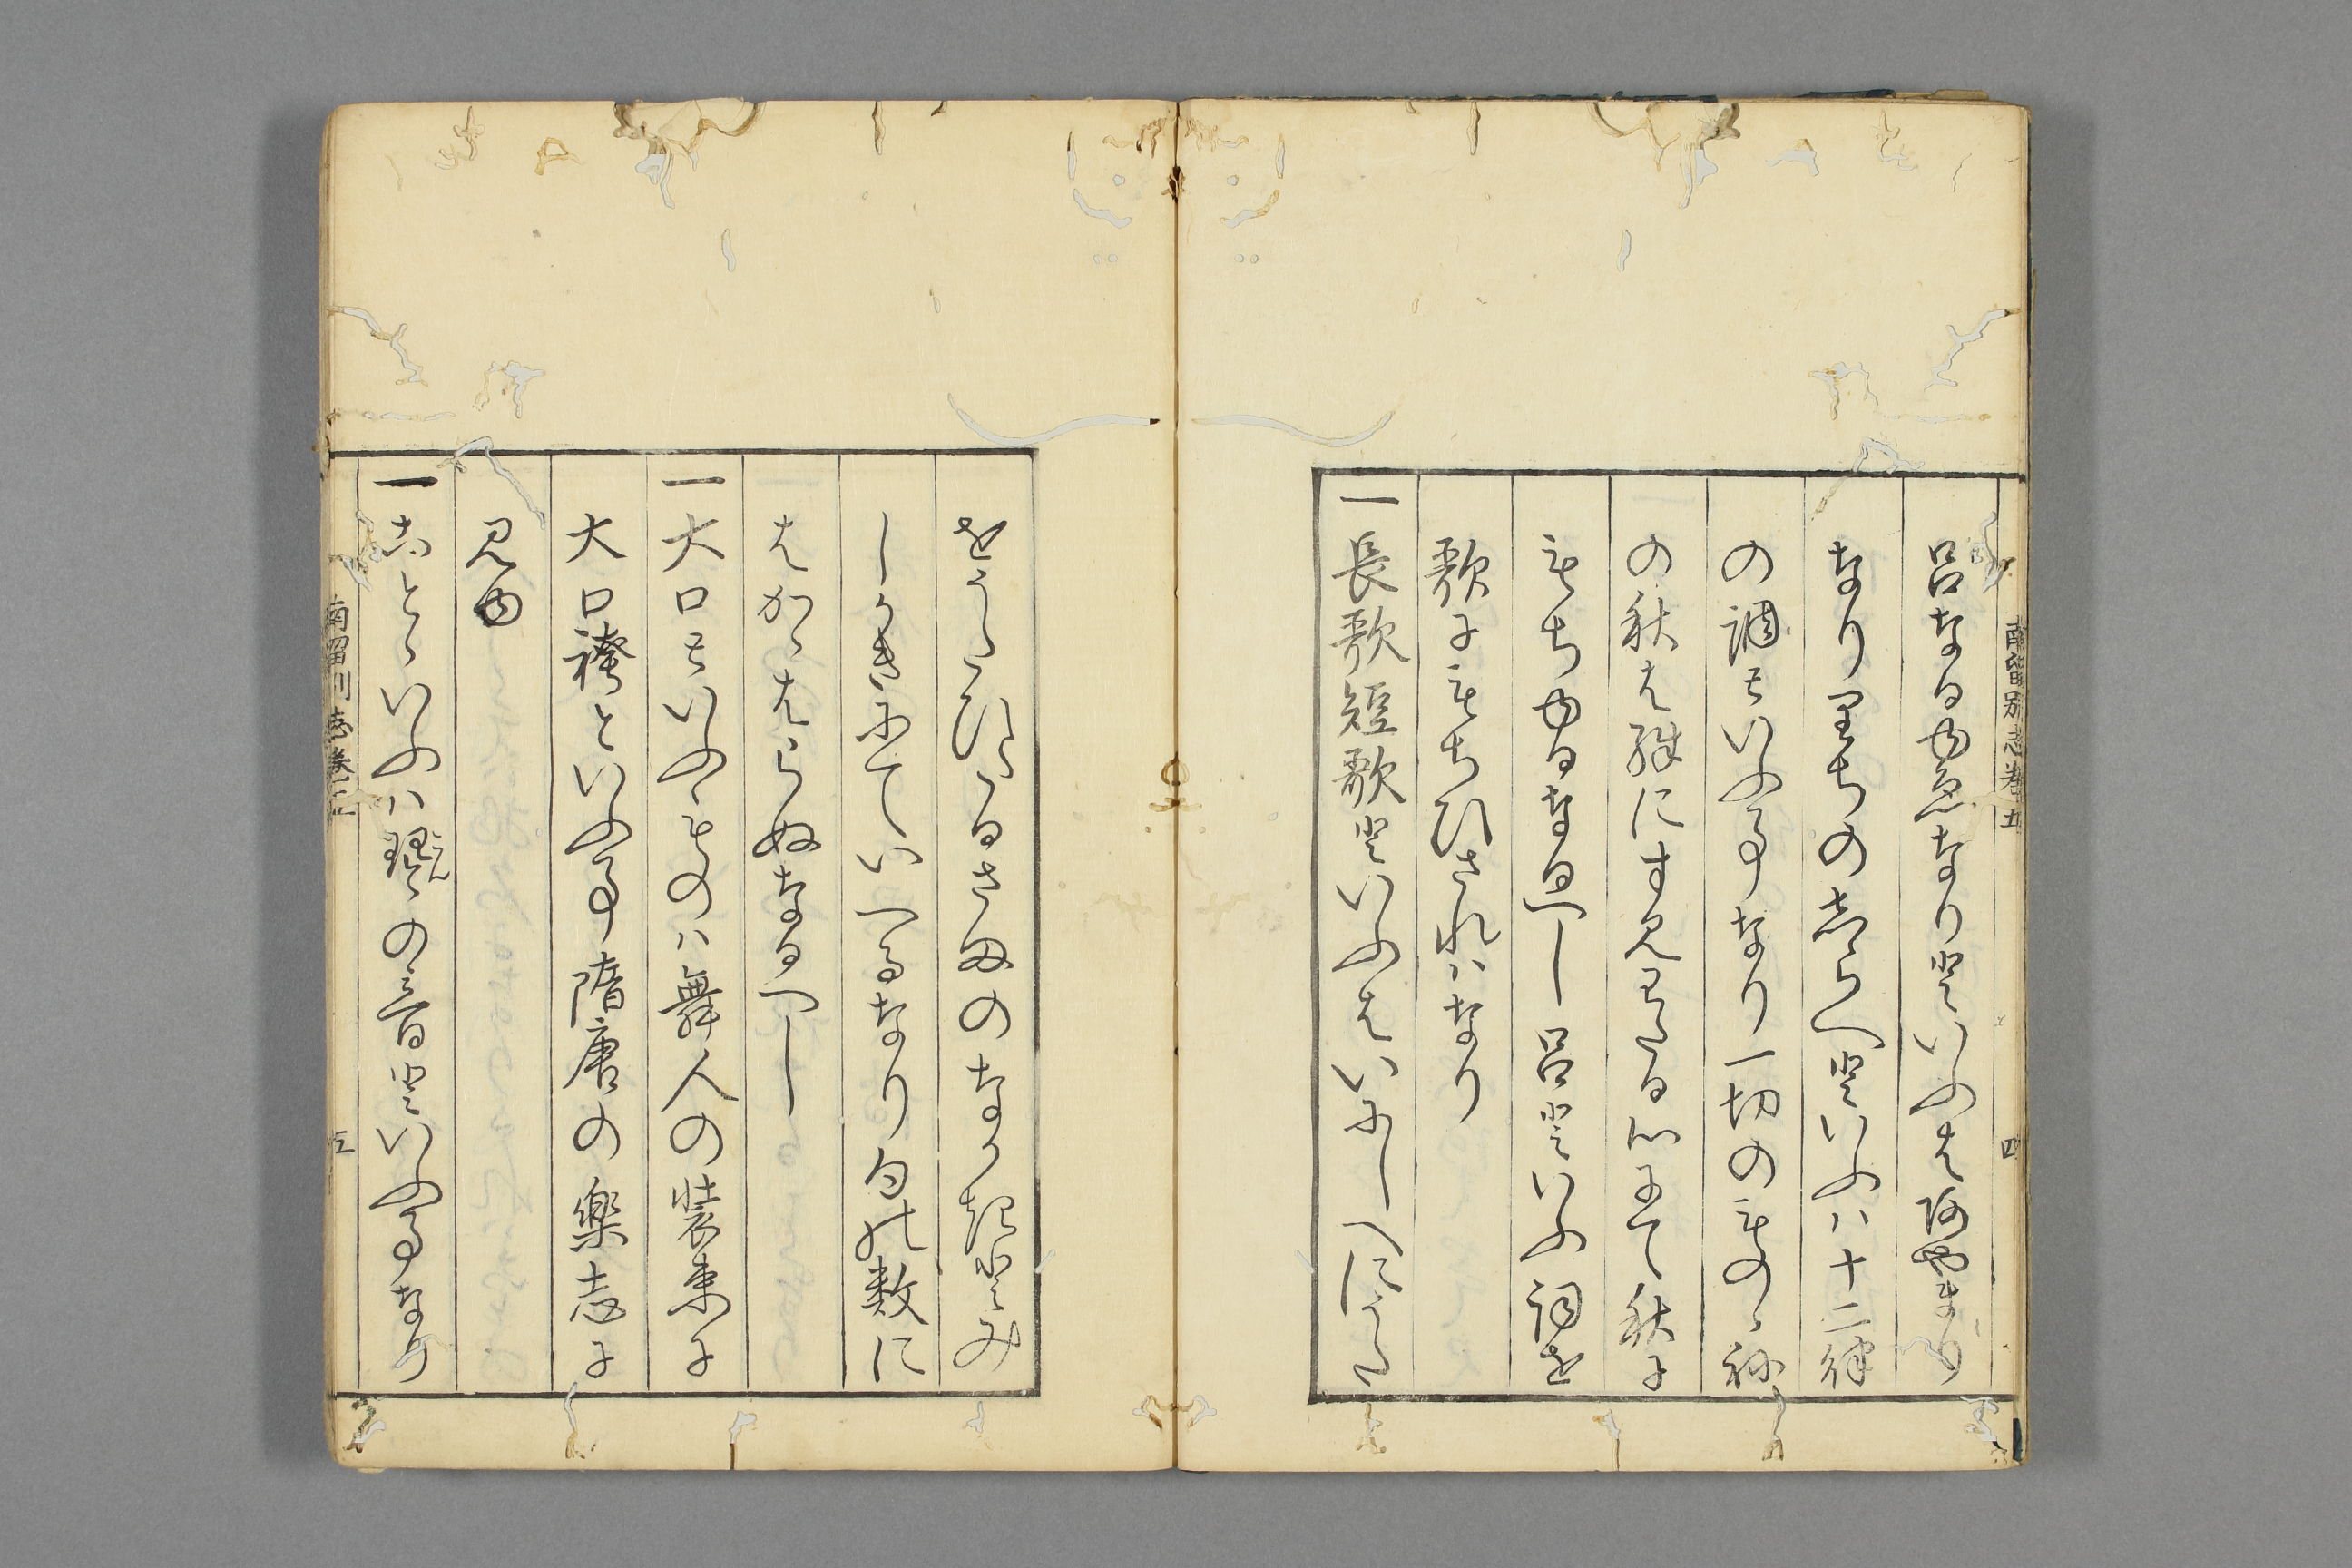 南留別志巻五　四
呂なるゆゑなりといふは阿やまり
なりりちのしらへといふハ十二律
の調といふ事なり一切のものゝ祢
の秋は殊にすみわたる心にて秋に
もちゆるなるへし呂といふ詞を
歌にもちひされハなり
一長歌短歌といふはいにしへにうた
をうたひたるさまのなかきとみ
しかきにていへるなり句の数に
はかゝはらぬなるへし
一大口といふものハ舞人の装束に
大口袴といふ事隋唐の楽志に
見ゆ
一ことゝいふハの音といふ事なり
南留別志巻五　五